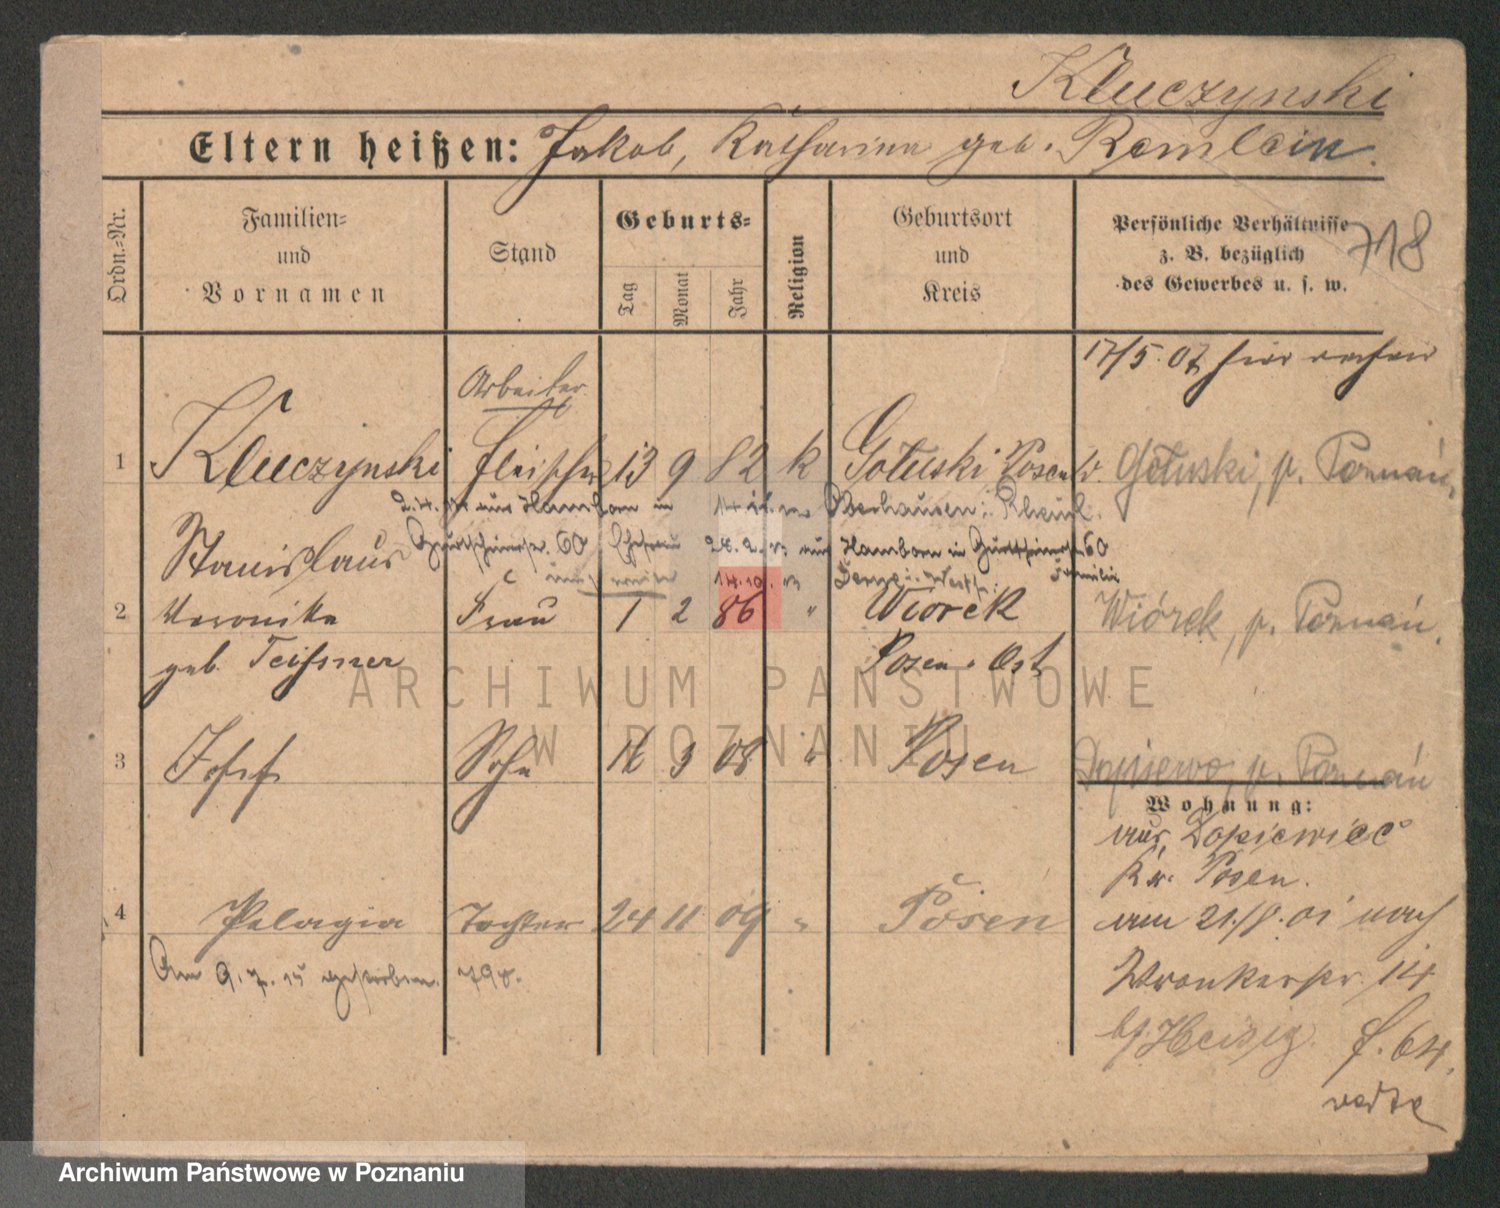 Kluczynski
Eltern heißen: Jakob, Katharina geb. Remlein.
Ordn.=Nr.
Familien=
und
Vornamen
Stand
Geburts=
Tag
Monat
Jahr
Religion
Geburtsort
und
Kreis
Persönliche Verhältnisse
z. B. bezüglich
des Gewerbes u. s. w.
718
17/5. 07 hier
Arbeiter
1 Kluczynski Fleischer 13 9 82 k Gotuski Posen W. Gołuski, p. Poznań,
2.4. aus Hamborn in Oberhausen i. Rheinl.
Stanislaus
60 Ehefrau 28.2. aus Hamborn in 60
14.10. Familie
2 Veronika Frau 1 2 86 " Wiorek Wiórek, p. Poznań.
geb. Teissner Posen Ost
3 Josef Sohn 16 3 08 " Posen Dopiewo, p. Poznań
Wohnung:
aus Dopiewiec
Kr. Posen.
4 Pelagia Tochter 24 11 09 " Posen
am 21./8. 01 nach
Am 9. 7. 15 gestorben. 798.
Wronkerstr. 14
b/Heisig f. 64.
verte
ARCHIWUM PAŃSTWOWE
W POZNANIU
Archiwum Państwowe w Poznaniu